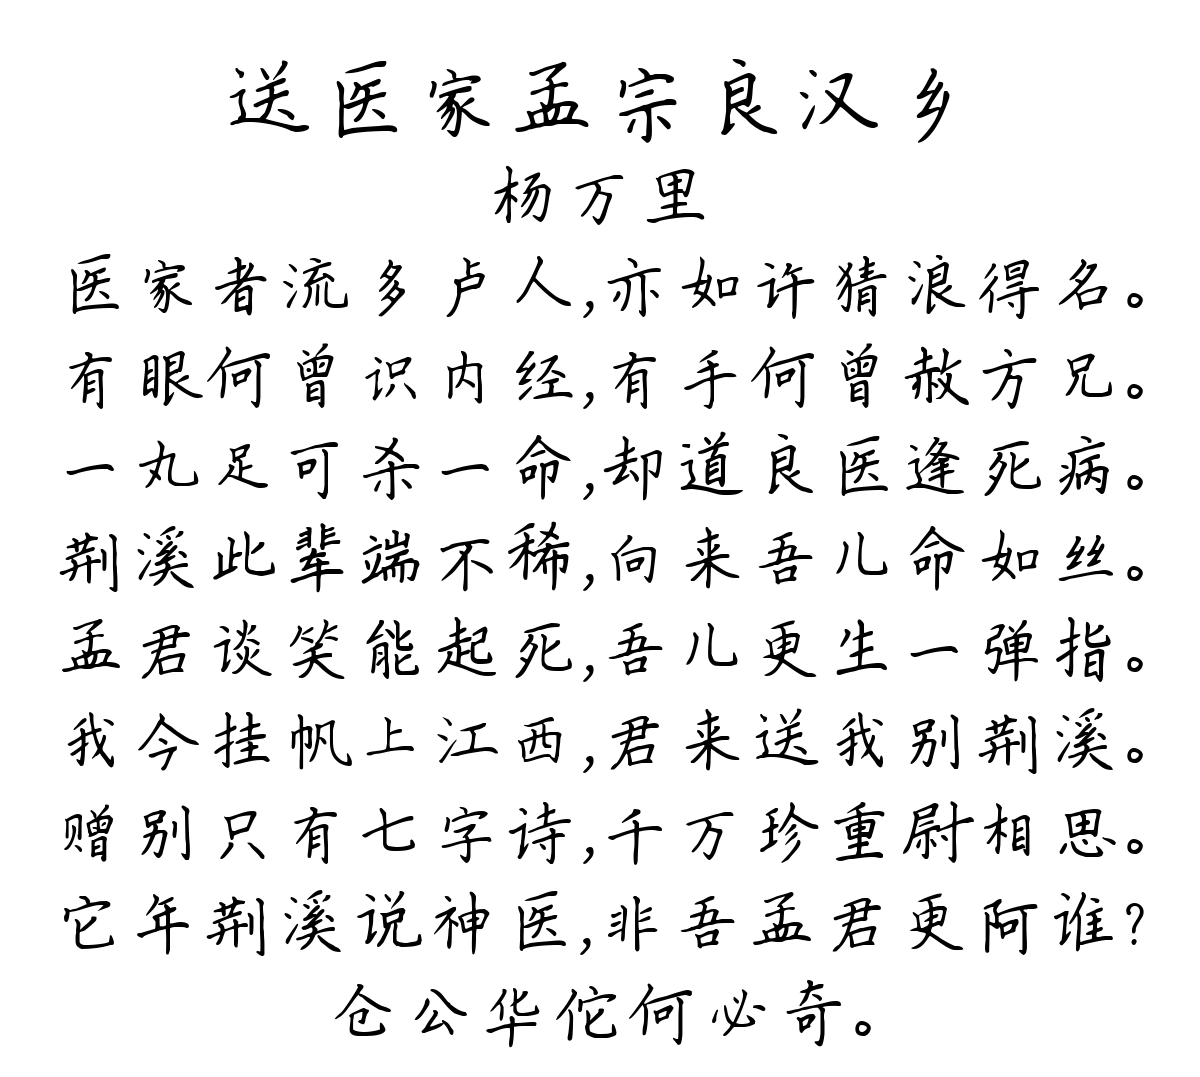 送医家孟宗良汉乡
杨万里
医家者流多卢人,亦如许猜浪得名。
有眼何曾识内经,有手何曾赦方兄。
一丸足可杀一命,却道良医逢死病。
荆溪此辈端不稀,向来吾儿命如丝。
孟君谈笑能起死,吾儿更生一弹指。
我今挂帆上江西,君来送我别荆溪。
赠别只有七字诗,千万珍重尉相思。
它年荆溪说神医,非吾孟君更阿谁?
仓公华佗何必奇。